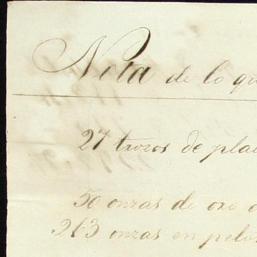 Nota de lo qu
27 trozos de pla
50 onzas de oro
263 onzas en pelos